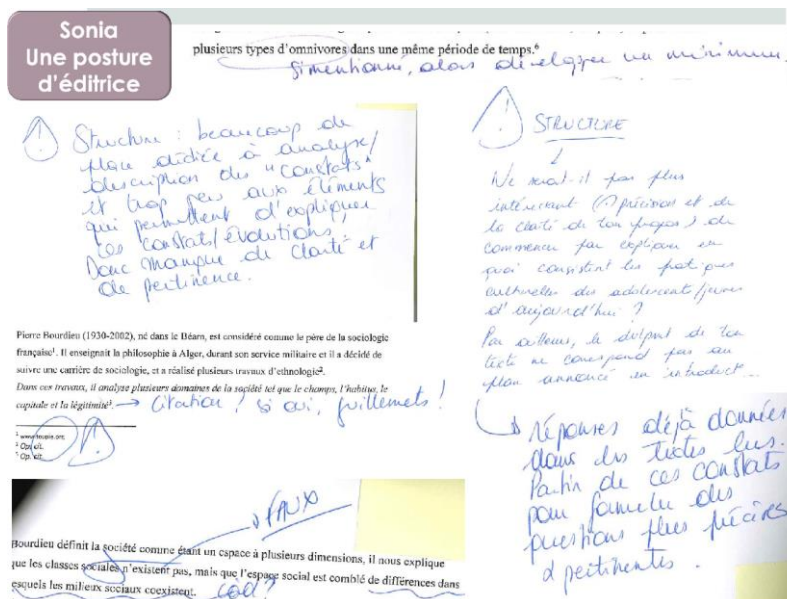 Sonia
Une posture
d'éditrice
plusieurs types d'omnivores dans une même période de temps.⁶
Si mentionné, alors développer un minimum.
! Structure : beaucoup de
place dédiée à analyse/
description des "constats"
et trop peu aux éléments
qui permettent d'expliquer
ces constats/évolutions.
Donc manque de clarté et
de pertinence.
! STRUCTURE
Ne serait-il pas plus
intéressant (précision et de
la clarté de ton propos) de
commencer par expliquer en
quoi consistent les pratiques
culturelles des adolescents/jeunes
d'aujourd'hui ?
Par ailleurs, le début de ton
texte ne correspond pas au
plan annoncé en introduct...
Réponses déjà données
dans les textes lus.
Partir de ces constats
pour formuler des
questions plus précises
et pertinentes.
Pierre Bourdieu (1930-2002), né dans le Béarn, est considéré comme le père de la sociologie
française¹. Il enseignait la philosophie à Alger, durant son service militaire et il a décidé de
suivre une carrière de sociologie, et a réalisé plusieurs travaux d'ethnologie².
Dans ces travaux, il analyse plusieurs domaines de la société tel que le champs, l'habitus, le
capitale et la légitimité³. → Citation ? si oui, guillemets !
¹ www.toupie.org
² Op. cit.
³ Op. cit.
!
→ FAUX
Bourdieu définit la société comme étant un espace à plusieurs dimensions, il nous explique
que les classes sociales n'existent pas, mais que l'espace social est comblé de différences dans
lesquels les milieux sociaux coexistent. càd ?